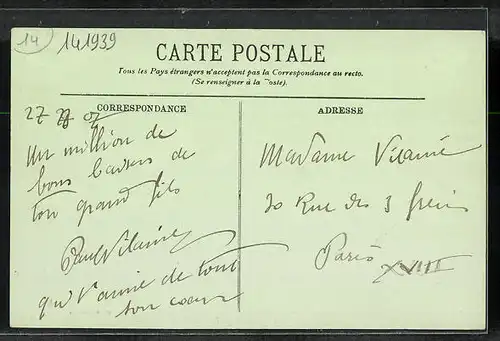 14
141939
CARTE POSTALE
Tous les Pays étrangers n'acceptent pas la Correspondance au recto.
(Se renseigner à la Poste).
CORRESPONDANCE
27 07
Un million de
bons baisers de
ton grand fils
Paul Vilaine
qui t'aime de tout
son coeur
ADRESSE
Madame Vilaine
30 Rue des 3 frères
Paris XVIII